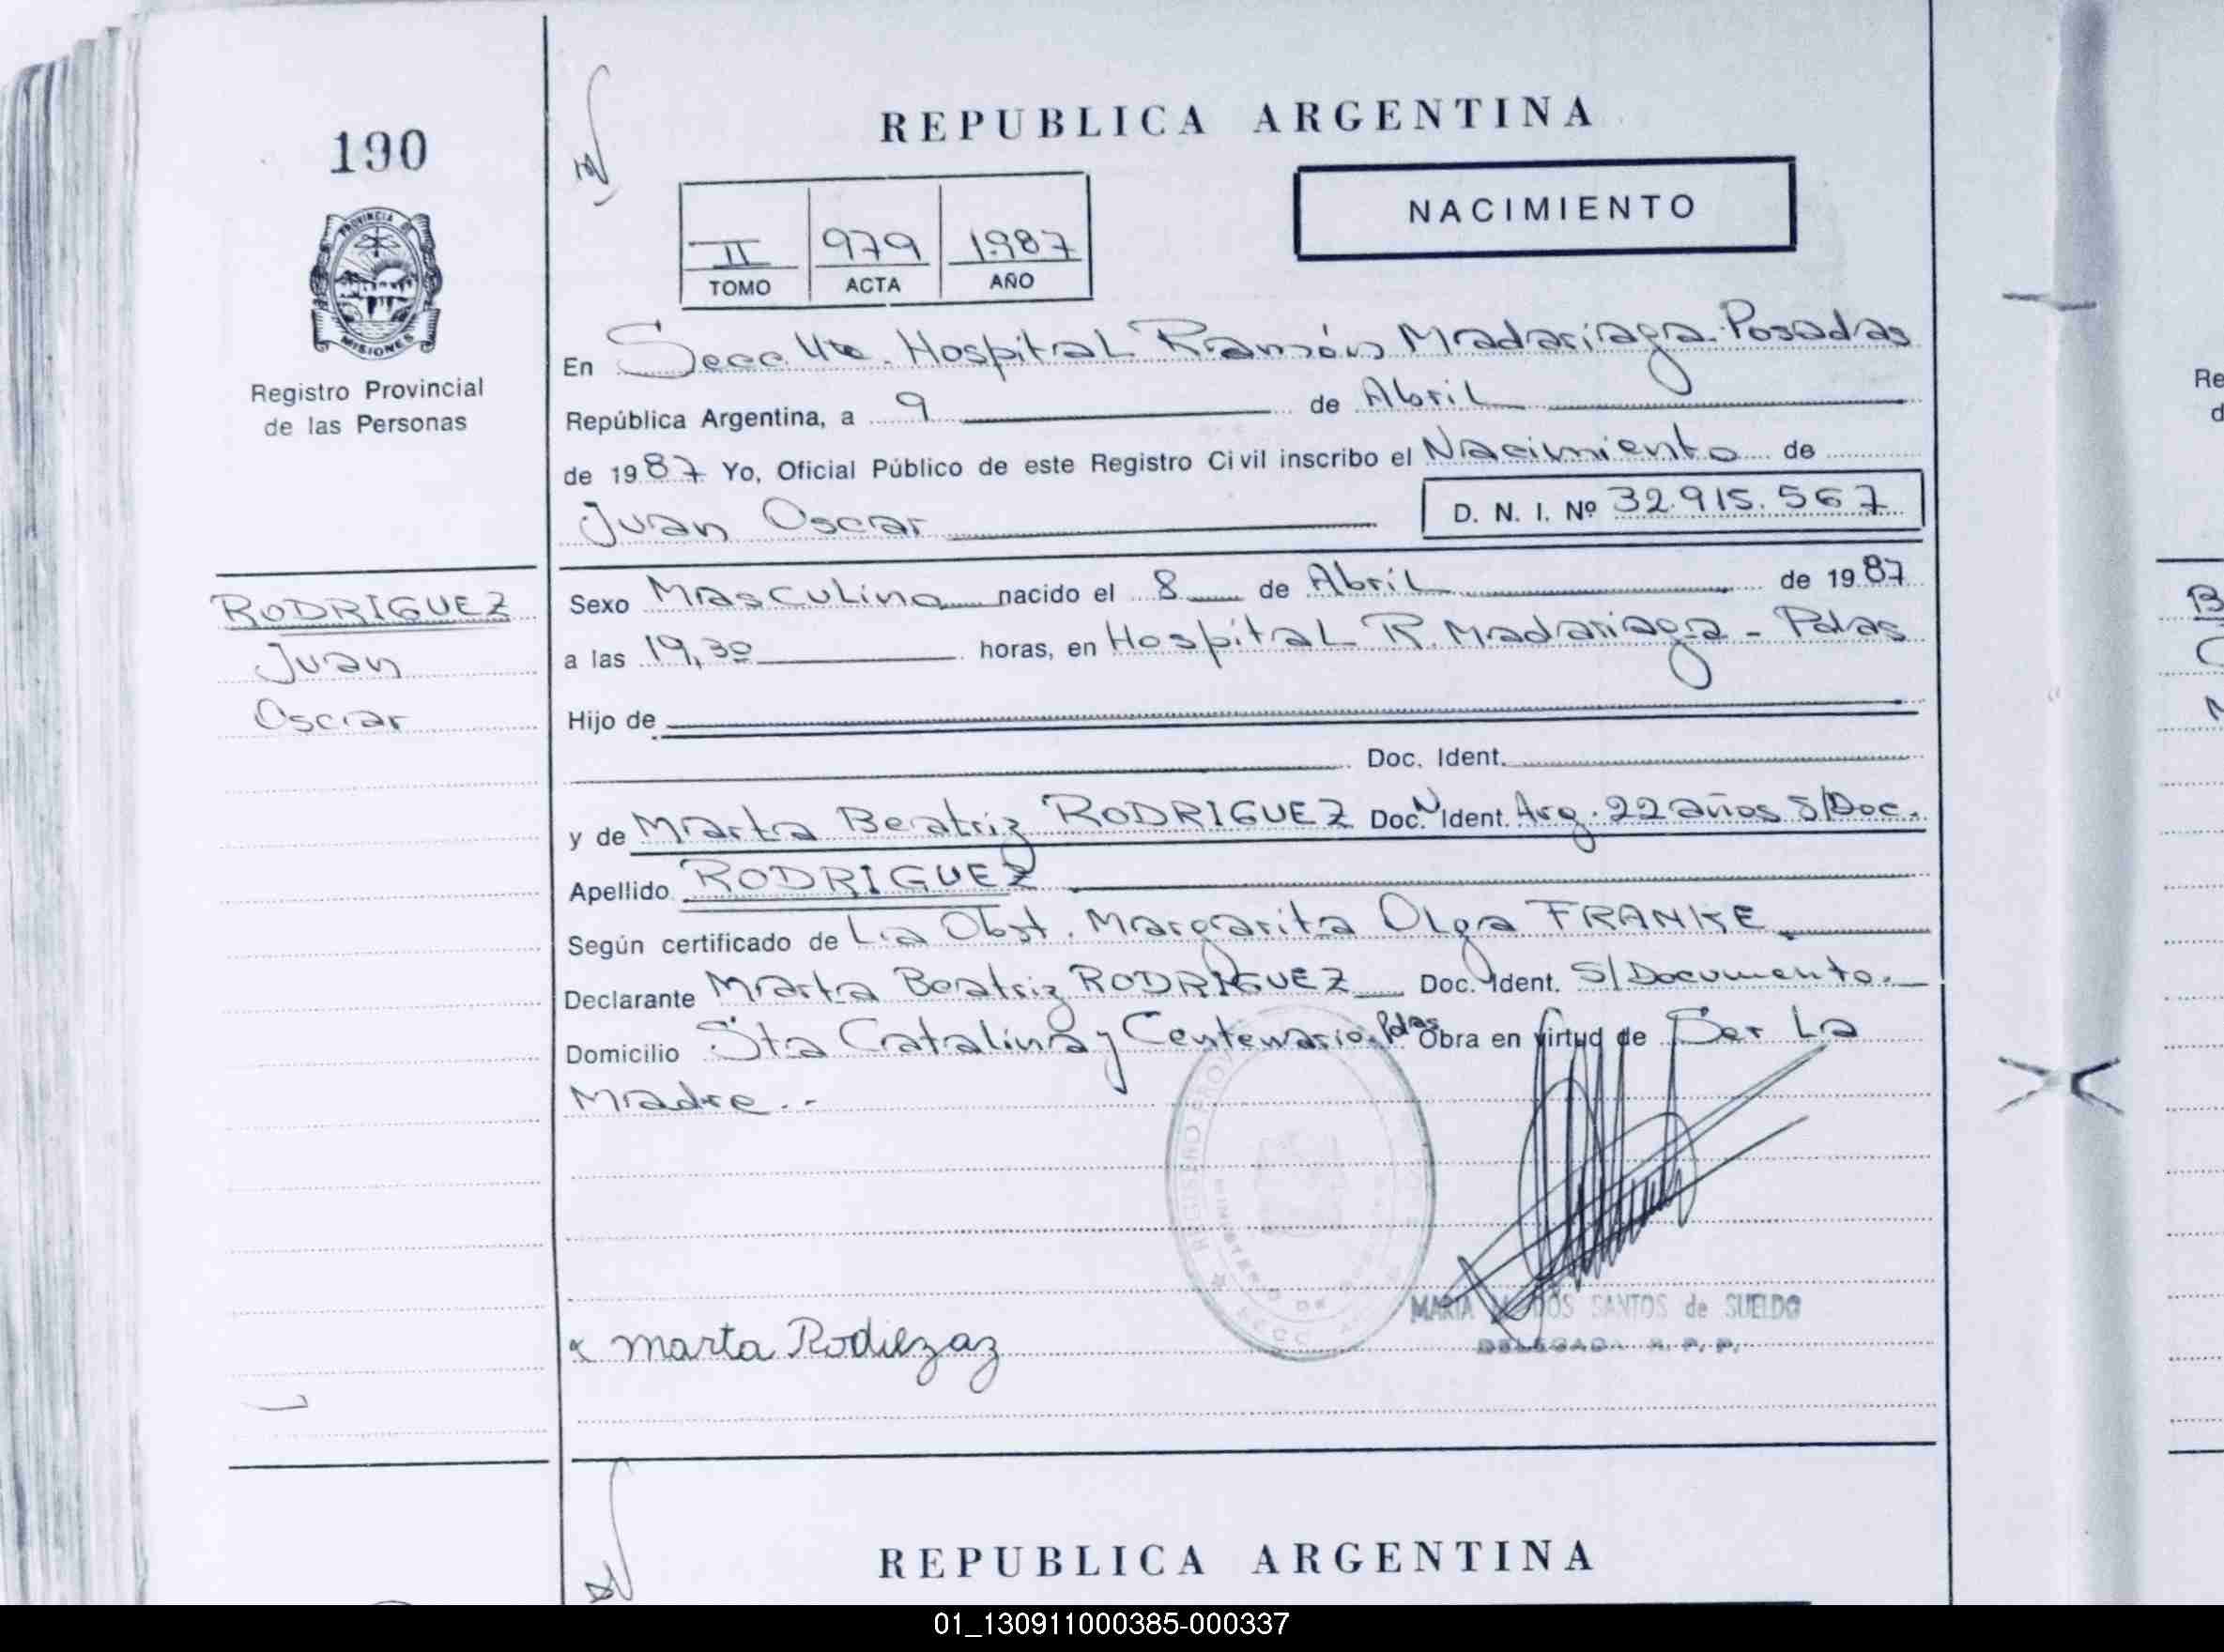 190
PROVINCIA
MISIONES
Registro Provincial
de las Personas
RODRIGUEZ
Juan
Oscar
REPUBLICA ARGENTINA
NACIMIENTO
II 979 1987
TOMO ACTA AÑO
En Secc Hospital Ramón Madariaga. Posadas
República Argentina, a 9 de Abril
de 1987 Yo, Oficial Público de este Registro Civil inscribo el Nacimiento de
Juan Oscar D. N. I. Nº 32.915.567
Sexo Masculino nacido el 8 de Abril de 1987
a las 19,30 horas, en Hospital R. Madariaga - Pdas
Hijo de
Doc. Ident.
y de Marta Beatriz RODRIGUEZ Doc. Ident. Arg. 22 años S/Doc.
Apellido RODRIGUEZ
Según certificado de La Obst. Margarita Olga FRANKE
Declarante Marta Beatriz RODRIGUEZ Doc. Ident. S/Documento.
Domicilio Sta Catalina y Centenario. Pdas Obra en virtud de Ser La
Madre.-
MARIA SANTOS de SUELDO
DELEGADA R. P. P.
x Marta Rodiezaz
REPUBLICA ARGENTINA
01_130911000385-000337